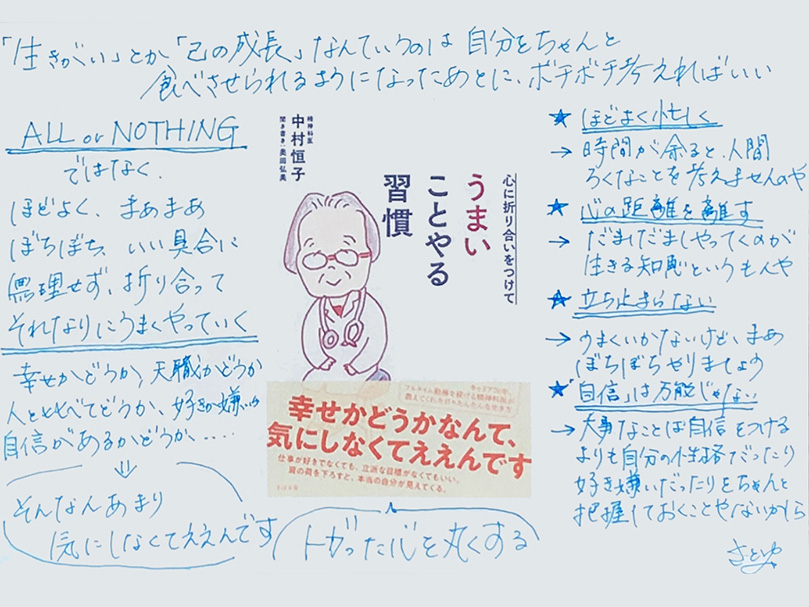 「生きがい」とか「己の成長」なんていうのは自分をちゃんと
食べさせられるようになったあとに、ボチボチ考えればいい
ALL or NOTHING
ではなく、
ほどよく、まぁまぁ
ぼちぼち、いい具合に
無理せず、折り合って
それなりにうまくやっていく
幸せかどうか、天職かどうか
人と比べてどうか、好きか嫌いか
自信があるかどうか、‥‥
⇓
そんなんあまり
気にしなくてええんです
精神科医
中村恒子
聞き書き・奥田弘美
心に折り合いをつけて
うまい
ことやる
習慣
幸せかどうかなんて、
気にしなくてええんです
仕事が好きでなくても、立派な目標がなくてもいい。
肩の荷を下ろすと、本当の自分が見えてくる。
トガった心を丸くする
★ ほどよく忙しく
→ 時間が余ると、人間
ろくなことを考えませんのや
★ 心の距離を離す
→ だましだましやってくのが
生きる知恵というもんや
★ 立ち止まらない
→ うまくいかないけど、まあ
ぼちぼちやりましょう
★「自信」は万能じゃない
→ 大事なことは自信をつける
よりも自分の性格だったり
好き嫌いだったりをちゃんと
把握しておくことやないかしら